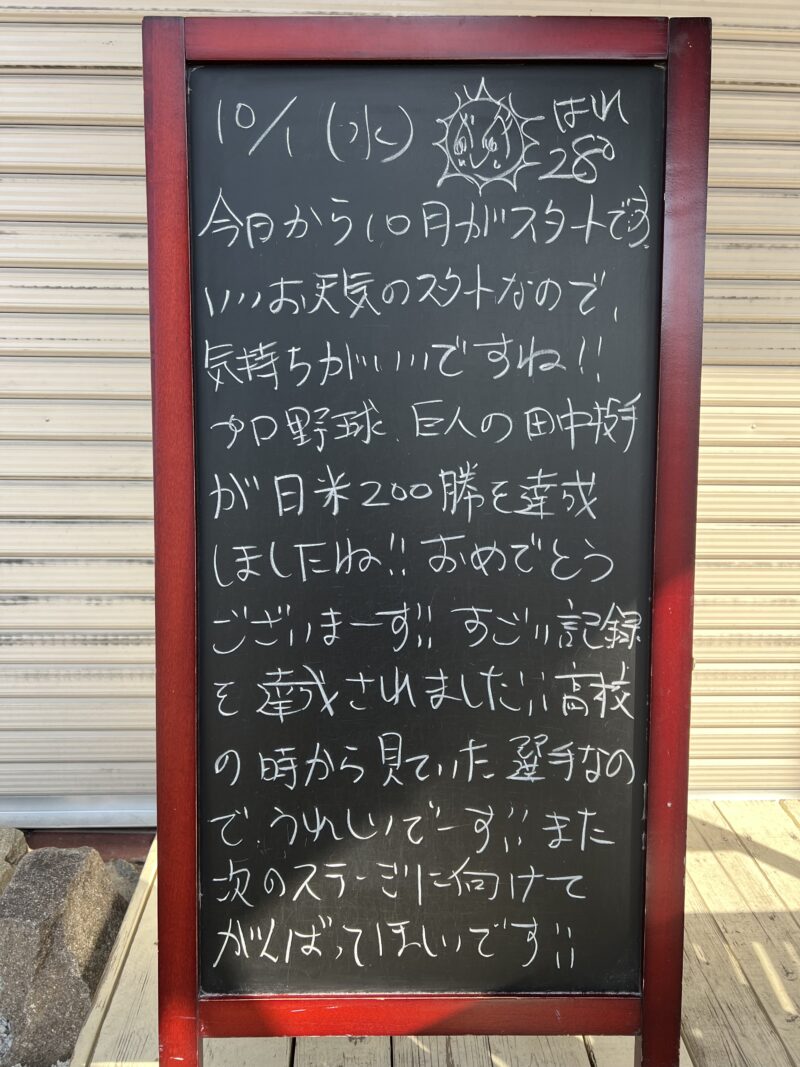 10/1 (水) はれ
28°
今日から10月がスタートです。
いいお天気のスタートなので、
気持ちがいいですね!!
プロ野球、巨人の田中投手
が日米200勝を達成
しましたね!! おめでとう
ございまーす!! すごい記録
を達成されました!! 高校
の時から見ていた選手なの
で、うれしいでーす!! また
次のステージに向けて
がんばってほしいです!!